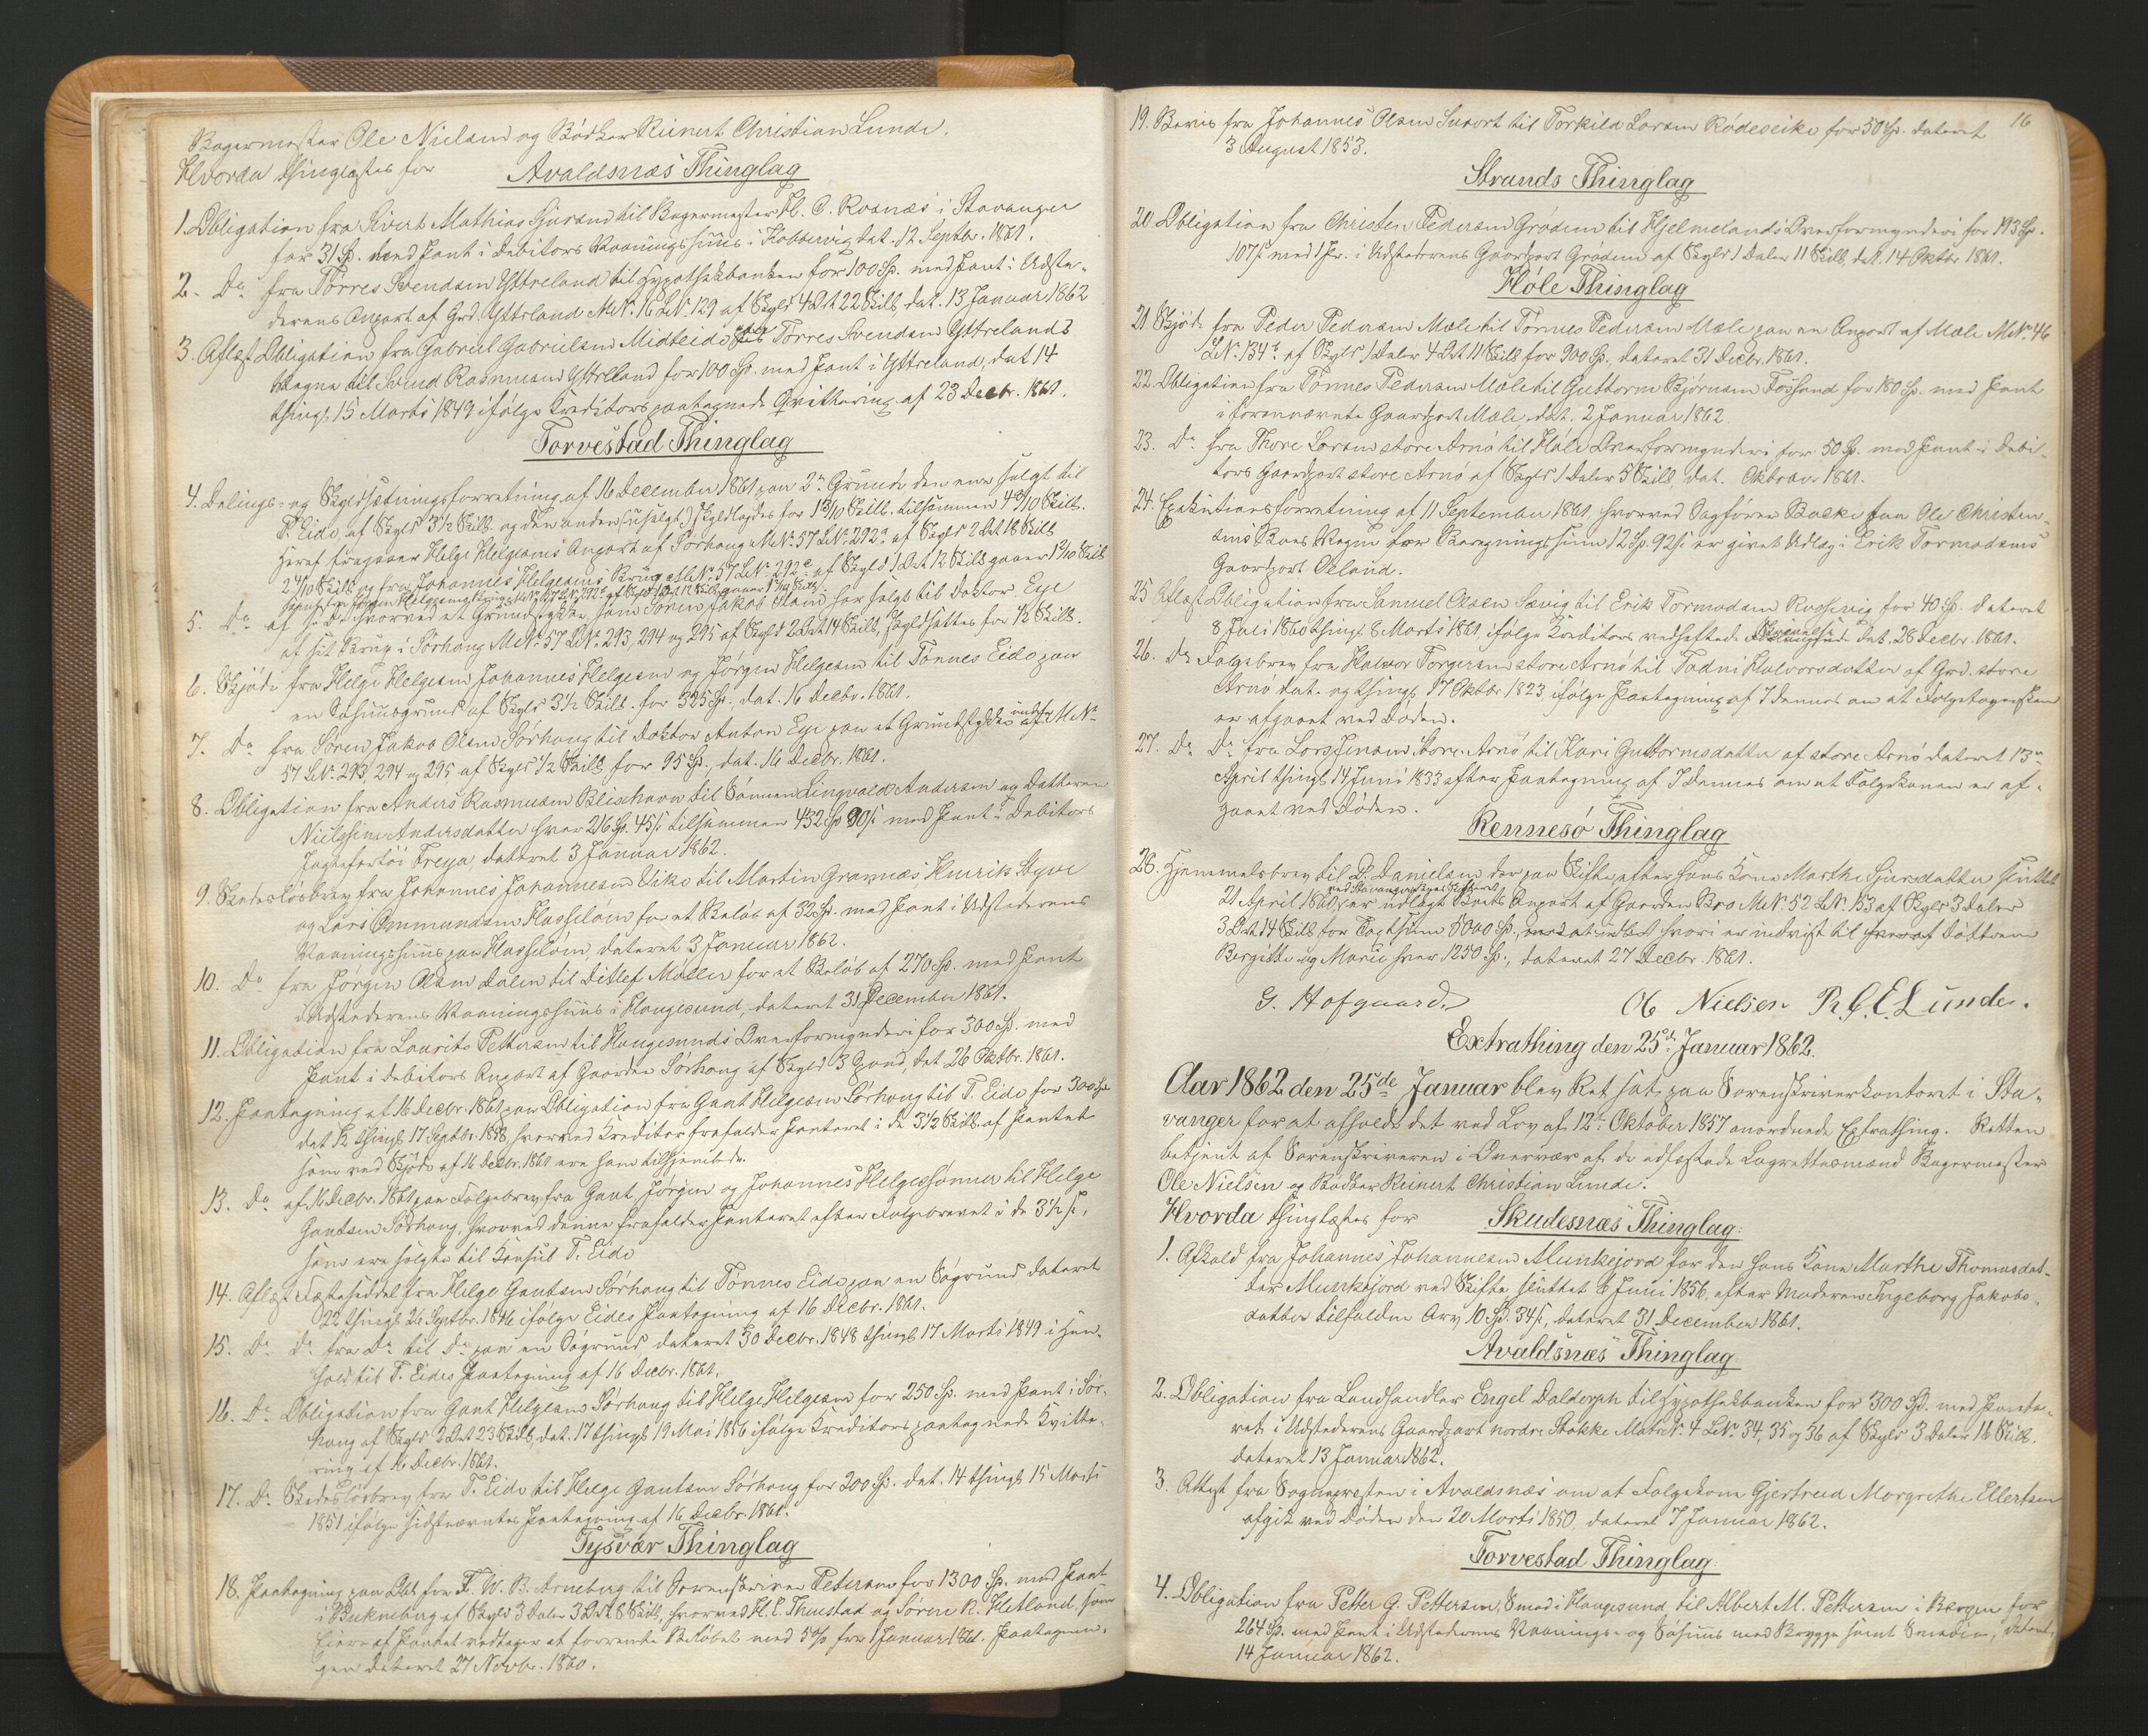 Bagermester Ole Nielsen og Bödker Reinert Christian Lunde.
Hvorda thinglæstes for Avaldsnæs Thinglag
1. Obligation fra Sivert Mathias Sjursen til Bagermester H. C. Rosnæs i Stavanger
for 31 Sp. med Pant i Debitors Vaaningshuus i Kobbervig dat. 12 Septbr. 1861.
2. Do fra Törres Svendsen Yttreland til Hypothekbanken for 100 Sp. med Pant i Udste-
derens Anpart af Grd. Yttreland M.No. 16 L.No. 129 af Skyld 4 Ort 22 Skill, dat. 13 Januar 1862
3. Aflæst Obligation fra Gabriel Gabrielsen Midteide Törres Svendsen Yttrelands
Vegne til Svend Rasmussen Yttreland for 100 Sp. med Pant i Yttreland, dat 14
thingl. 15 Marts 1849 ifölge Kreditors paategnede Qvittering af 23 Decbr. 1861.
Torvestad Thinglag
4. Delings- og Skyldsætningsforretning af 16 December 1861 paa 2de Grunde den ene solgt til
T. Eide, af Skyld 3 1/2 Skill. og den anden (usolgt) skyldlagdes for 1 3/10 Skill. tilsammen 4 8/10 Skill.
Heraf fragaaer Helge Helgesens Anpart af Sörhaug M.No. 57 L.No. 292a af Skyld 2 Ort 18 Skill
2 4/10 Skill og fra Johannes Helgesens Brug M.No. 57 L.No. 292c af Skyld 1 Ort 12 Skill gaaer 1 2/10 Skill
5. Do af s. D. hvorved et Grundstykke som Sören Jakob Olsen har solgt til Doktor Eye
af sit Brug i Sörhaug M.No. 57 L.No. 293, 294 og 295 af Skyld 2 Ort 14 Skill, skyldsattes for 1/2 Skill.
6. Skjöde fra Helge Helgesen Johannes Helgesen og Jörgen Helgesen til Tönnes Eide paa
en Söhuusgrund af Skyld 3 1/2 Skill. for 325 Sp. dat. 16 Decbr. 1861.
7. Do fra Sören Jakob Olsen Sörhaug til Doktor Anton Eye paa et Grundstykke under M.No.
57 L.No. 293, 294 og 295 af Skyld 1/2 Skill for 95 Sp., dat. 16 Decbr. 1861.
8. Obligation fra Anders Rasmussen Bleiehavn til Sönnen Lingvald Andersen og Datteren
Nielsine Andersdatter hver 216 Sp. 45 s tilsammen 432 Sp 90 s med Pant i Debitors
Jagtefartöi Freya, dateret 3 Januar 1862.
9. Skadeslösbrev fra Johannes Johannesen Vike til Martin Grannæs, Henrik Styve
og Lars Ommundsen Hasseløen for et Belöb af 32 Sp. med Pant i Udstederens
Vaaningshuus paa Hasseløen, dateret 3 Januar 1862.
10. Do fra Jörgen Olsen Dalen til Ditlef Möller for et Belöb af 270 Sp. med Pant
i Udstederens Vaaningshuus i Haugesund, dateret 31 December 1861.
11. Obligation fra Laurits Pettersen til Haugesunds Overformynderi for 300 Sp. med
Pant i Debitors Anpart af Gaarden Sörhaug af Skyld 3 Pund, dat 26 Oktbr. 1861.
12. Paategning af 16 Decbr. 1861 paa Obligation fra Gaut Helgesen Sörhaug til T. Eide for 300 Sp
dat 12 thingl. 17 Septbr. 1858, hvorved Kreditor frafalder Panteret i de 3 1/2 Skill. af Pantet
som ved Skjöde af 16 Decbr. 1861 ere ham tilhjemlede.
13. Do af 16 Decbr. 1861 paa Folgebrev fra Gaut, Jörgen og Johannes Helgessönner til Helge
Gautsen Sörhaug, hvorved denne frafalder Panteret efter Folgebrevet i de 3 1/2 s,
som ere solgte til Konsul T. Eide
14. Aflæst Fæsteseddel fra Helge Gautsen Sörhaug til Tönnes Eide paa en Sögrund dateret
22 thingl. 26 Septbr. 1846 ifölge Eides Paategning af 16 Decbr. 1861.
15. Do Do fra Do til Do paa en Sögrund dateret 30 Decbr. 1848 thingl. 17 Marts 1849 i Hen-
hold til T. Eides Paategning af 16 Decbr. 1861.
16. Do Obligation fra Gaut Helgesens Sörhaug til Helge Helgesen for 250 Sp. med Pant i Sör-
haug af Skyld 2 Ort 23 Skill, dat. 17 thingl. 19 Mai 1856 ifölge Kreditors paategnede Kvitte-
ring af 16 Decbr. 1861.
17. Do Skadeslösbrev fra T. Eide til Helge Gautsen Sörhaug for 200 Sp. dat. 14 thingl. 15 Marts
1851 ifölge sidstnævntes Paategning af 16 Decbr. 1861.
Tysvær Thinglag
18. Paategning paa Obl. fra F. W. B. Arneberg til Sorenskriver Petersen for 1300 Sp. med Pant
i Bukneberg af Skyld 3 Daler 3 Ort 8 Skill, hvorved H. E. Thuestad og Sören R. Hetland som
Eiere af Pantet vedtager at forrente Belöbet med 5 % fra 1 Januar 1861. Paategnin-
gen dateret 27 Novbr. 1860.
16
19. Bevis fra Johannes Olsen Suvort til Torkild Larsen Rödeseike for 50 Sp. dateret
3 August 1853.
Strands Thinglag
20. Obligation fra Christen Pedersen Gröden til Hjelmelands Overformynderi for 193 Sp.
107 s med 1 Pr. i Udstederens Gaardpart Gröden af Skyld 1 Daler 11 Skill, dat. 14 Oktbr 1861.
Höle Thinglag
21. Skjöde fra Peder Pedersen Mæle til Tönnes Pedersen Mæle paa en Anpart af Mæle M.No. 46
L.No. 134 af Skyld 1 Daler 4 Ort 11 Skill for 900 Sp. dateret 31 Decbr. 1861.
22. Obligation fra Tönnes Pedersen Mæle til Guttorm Björnsen Fossand for 180 Sp. med Pant
i forennævnte Gaardpart Mæle, dat. 2 Januar 1862.
23. Do fra Thore Larsen store Arnö til Höle Overformynderi for 50 Sp. med Pant i Debi-
tors Gaardpart store Arnö af Skyld 1 Daler 5 Skill, dat. Oktober 1861.
24. Exekutionsforretning af 11 September 1861, hvorved Sagförer Backe paa Ole Christen-
sens Boes Vegne for Beregningssum 12 Sp. 92 s er givet Udlæg i Erik Tormodsens
Gaardpart Oeland.
25. Aflæst Obligation fra Samuel Olsen Sævig til Erik Tormodsen for 40 Sp. dateret
8 Juli 1860 thingl. 8 Marts 1861, ifölge Kreditors vedheftede Skrivelse dat. 28 Decbr. 1861.
26. Do Folgebrev fra Halvor Torgersen store Arnö til Tadni Halvorsdatter af Grd. store
Arnö dat. og thingl. 17 Oktbr. 1823 ifölge Paategning af 7 Dennes om at Folgetagersken
er afgaaet ved Döden.
27. Do Do fra Lars Jensen Store-Arnö til Kari Guttormsdatter af store Arnö dateret 13de
April thingl. 14 Juni 1833 efter Paategning af 7 Dennes om at Folgekonen er af-
gaaet ved Döden.
Rennesö Thinglag
28. Hjemmelsbrev til D. Danielsen der paa Skifte efter hans Kone Marthe Sjursdatter sluttet
21 April 1860 er udlagt Boets Anpart af Gaarden Bro M.No. 52 L.No. 153 af Skyld 3 Daler
3 Ort 14 Skill for Taxtsum 5000 Sp., hvori er udvist til Döttrene
Bergitte og Marie hver 1250 Sp., dateret 27 Decbr. 1861.
G. Hofgaard. Ol. Nielsen R. C. E. Lunde.
Extrathing den 25de Januar 1862.
Aar 1862 den 25de Januar blev Ret sat paa Sorenskriverkontoret i Sta-
vanger for at afholde det ved Lov af 12te Oktober 1857 anordnede Extrathing. Retten
betjent af Sorenskriveren i Overvær af de edfæstede Lagrettesmænd Bagermester
Ole Nielsen og Bödker Reinert Christian Lunde.
Hvorda thinglæstes for Skudesnæs Thinglag:
1. Afkald fra Johannes Johannesen Munkejord for den hans Kone Marthe Thomasdat-
ter Munkejord ved Skifte sluttet 6 Juni 1856, efter Moderen Ingeborg Jakobs-
datter tilfaldne Arv 10 Sp. 34 s, dateret 31 December 1861.
Avaldsnæs Thinglag
2. Obligation fra Landhandler Engel Daldorph til Hypothekbanken for 300 Sp. med Pante-
ret i Udstederens Gaardpart nordre Stokke Matr.No. 4 L.No. 34, 35 og 36 af Skyld 3 Daler 16 Skill.
dateret 13 Januar 1862.
3. Attest fra Sognepresten i Avaldsnæs om at Folgekone Gjertrud Margrethe Ellertsen
afgik ved Döden den 20 Marts 1850, dateret 7 Januar 1862.
Torvestad Thinglag.
4. Obligation fra Petter G. Pettersen, Smed i Haugesund, til Albert M. Pettersen i Bergen for
264 Sp. med Pant i Udstederens Vaanings- og Söhuus med Brygge samt Smedie, datert,
14 Januar 1862.